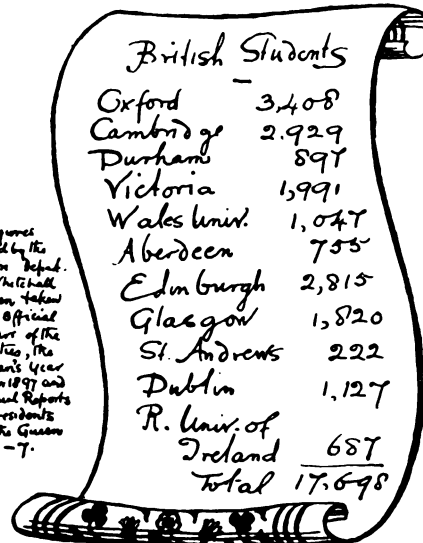 British Students
Oxford 3,408
Cambridge 2.929
Durham 897
Victoria 1,991
Wales Univ. 1,047
Aberdeen 755
Edinburgh 2,815
Glasgow 1,820
St. Andrews 222
Dublin 1,127
R. Univ. of
Ireland 687
Total 17.698
gures
d by the
n Depart.
Whitehall
en taken
Official
of the
ties, the
an's Year
n 1897 and
ual Reports
residents
the Queen
-7.